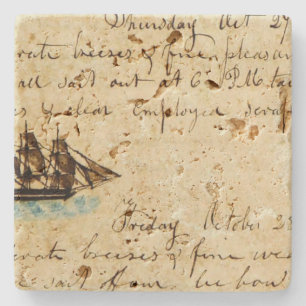 Thursday Oct 27
rate breezes & fine pleasan
all sail out at 6 P.M. ta
& clear Employed scrap
Friday October 28
erate breezes & fine wea
sail